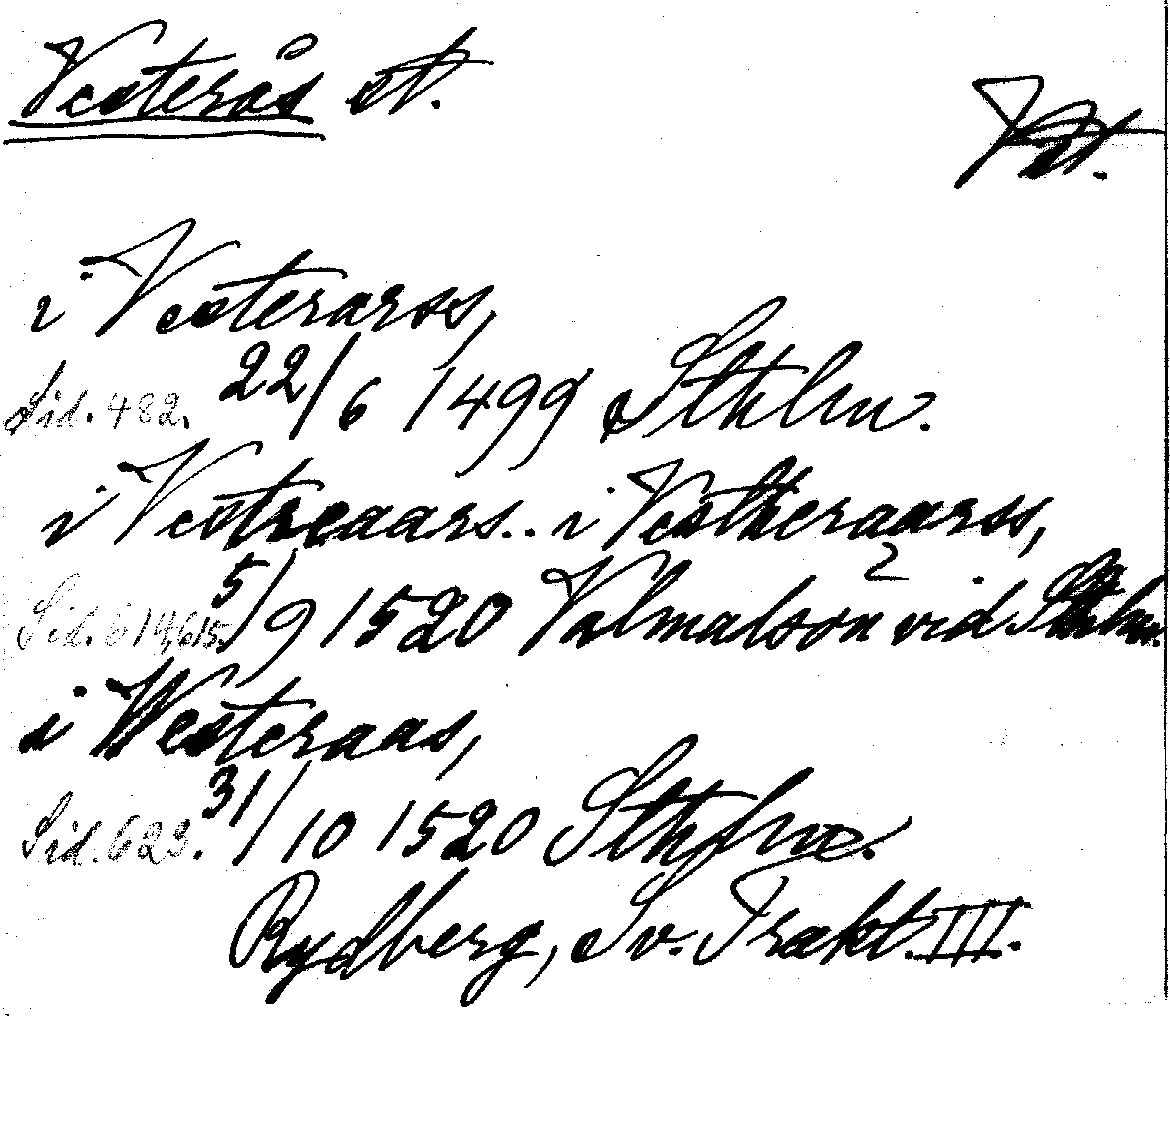 Vesterås st.
Vst.
i Vesterarss,
Sid. 482. 22/6 1499 Sthlm.
i Vestreaars.. i Vestheraarss,
Sid. 614,615. 5/9 1520 Valmalsön vid Sthlm.
i Westeraas,
Sid. 623. 31/10 1520 Sthlm.
Rydberg, Sv. Trakt. III.